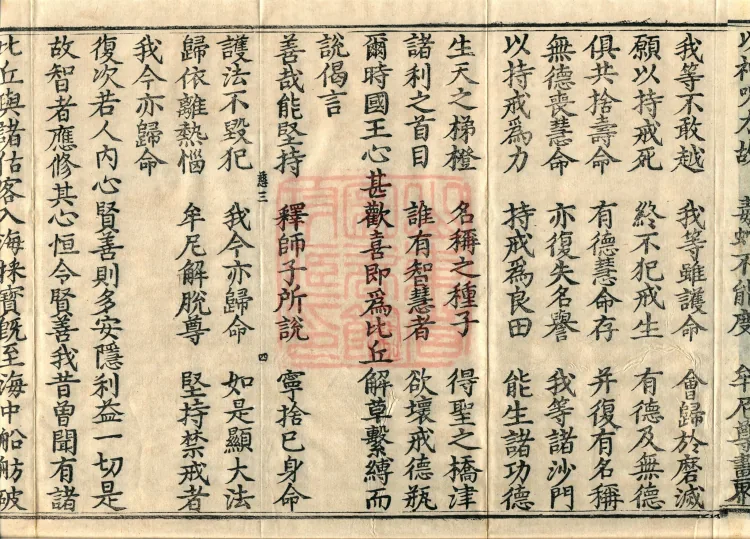 以神呪力故　毒蛇不能度　牟尼尊畫界
我等不敢越　我等雖護命　會歸於磨滅
願以持戒死　終不犯戒生　有德及無德
俱共捨壽命　有德慧命存　并復有名稱
無德喪慧命　亦復失名譽　我等諸沙門
以持戒爲力　持戒爲良田　能生諸功德
生天之梯橙　名稱之種子　得聖之橋津
諸利之首目　誰有智慧者　欲壞戒德瓶
爾時國王心甚歡喜即爲比丘解草繫縛而
說偈言
善哉能堅持　釋師子所說　寧捨己身命
三　四
護法不毀犯　我今亦歸命　如是顯大法
歸依離熱惱　牟尼解脫尊　堅持禁戒者
我今亦歸命
復次若人內心賢善則多安隱利益一切是
故智者應修其心恒令賢善我昔曾聞有諸
比丘與諸估客入海採寶既至海中船舫破